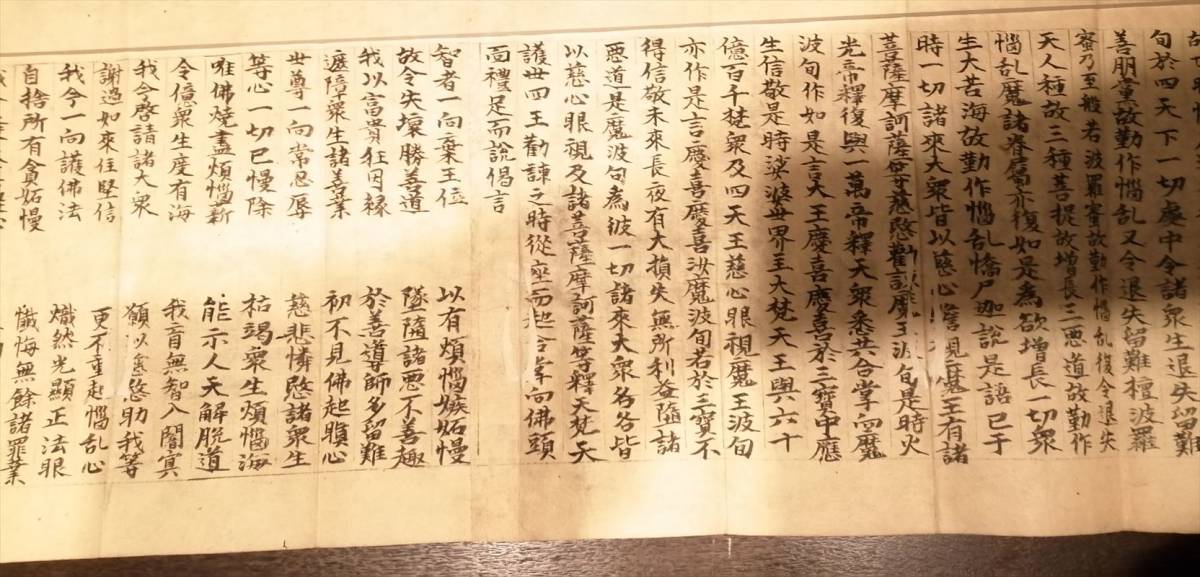 旬於四天下一切處中令諸衆生退失留難
善朋黨故勤作惱乱又令退失留難檀波羅
蜜乃至般若波羅蜜故勤作惱乱復令退失
天人種故三種菩提故增長三惡道故勤作
惱乱魔諸眷屬亦復如是為欲增長一切衆
生大苦海故勤作惱乱憍尸迦說是語已于
時一切諸來大衆皆以慈心視魔王有諸
菩薩摩訶薩等慈愍勸諫魔王波旬是時火
光帝釋復與一萬帝釋天衆悉共合掌向魔
波旬作如是言大王應喜應喜於三寶中應
生信敬是時娑婆世界主大梵天王與六十
億百千梵衆及四天王慈心眼視魔王波旬
亦作是言應喜應喜汝魔波旬若於三寶不
得信敬未來長夜有大損失無所利益隨諸
惡道是魔波旬為彼一切諸來大衆各各皆
以慈心眼視及諸菩薩摩訶薩等釋天梵天
護世四王勸諫之時從座而起合掌向佛頭
面禮足而說偈言
智者一向棄王位 以有煩惱嫉妬慢
故令失壞勝善道 墜墮諸惡不善趣
我以富貴狂因緣 於善導師多留難
遮障衆生諸善業 初不見佛起瞋心
世尊一向常忍辱 慈悲憐愍諸衆生
等心一切已慢除 枯竭衆生煩惱海
唯佛燒盡煩惱薪 能示人天解脫道
令億衆生度有海 我盲無智入闇冥
我今啓請諸大衆 願以慈愍助我等
謝過如來住堅信 更不重起惱乱心
我今一向護佛法 熾然光顯正法眼
自捨所有貪妬慢 懺悔無餘諸罪業